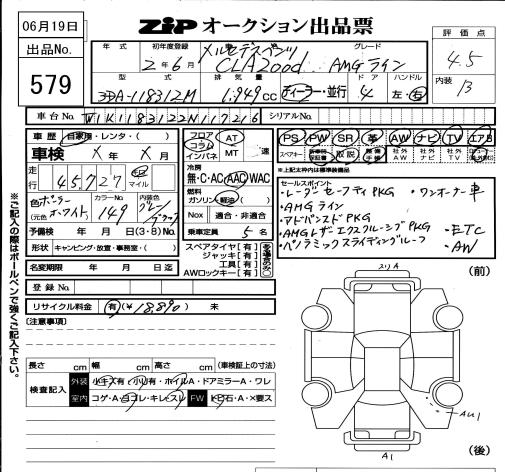 06月19日
ZIP オークション出品票
出品No.
579
評価点
4.5
内装
B
年式 初年度登録 グレード
2年6月 メルセデスベンツ
CLA200d AMGライン
型式 排気量 ドア ハンドル
3DA-118312M 1.949cc ディーラー・並行 4 左・右
車台No. W1K1183122N117216 シリアルNo.
車歴 自家用・レンタ・( )
車検 X年 X月
走行 45,727 キロ マイル
色 ポーラーホワイト カラーNo. 149 内装色 グレー ブラック
(元色 )
フロア コラム インパネ AT MT 速
冷房
無・C・AC・AAC・WAC
燃料
ガソリン・軽油・( )
Nox 適合・非適合
乗車定員 5名
PS PW SR 革 AW ナビ TV エアB
スペアキー 新車時保証書 取説 整備手帳 社外AW 社外ナビ 社外TV
※上記太枠内は標準装備品
セールスポイント
・レーダーセーフティPKG ・ワンオーナー車
・AMGライン
・アドバンスドPKG
・AMGレザーエクスクルーシブPKG ・ETC
・パノラミックスライディングルーフ ・AW
予備検 年 月 日(3・8)No.
形状 キャンピング・放置・事務室・( )
名変期限 年 月 日迄
スペアタイヤ[有]
ジャッキ[有]
工具[有]
AWロックキー[有]
登録No.
リサイクル料金 有(¥18.890) 未
(注意事項)
※ご記入の際はボールペンで強くご記入下さい。
長さ cm 幅 cm 高さ cm (車検証上の寸法)
検査記入 外装 小キズ有・小凹有・ホイルA・ドアミラーA・ワレ
室内 コゲ・A・ヨゴレ・キレ・スレ FW トビ石・A・X要ス
(前)
スリA
AU1
A1
(後)